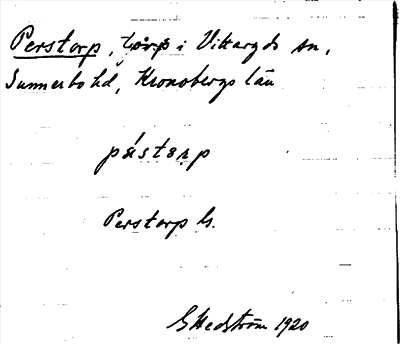 Perstorp, torp i Vittaryds sn,
Sunnerbo hd, Kronobergs län
pǽstorp
Perstorp G.
G Hedström 1920